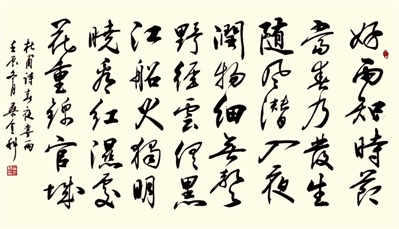 好雨知時節
當春乃發生
随風潜入夜
潤物細無聲
野徑雲俱黑
江船火獨明
曉看紅濕處
花重錦官城
杜甫詩春夜喜雨
壬辰